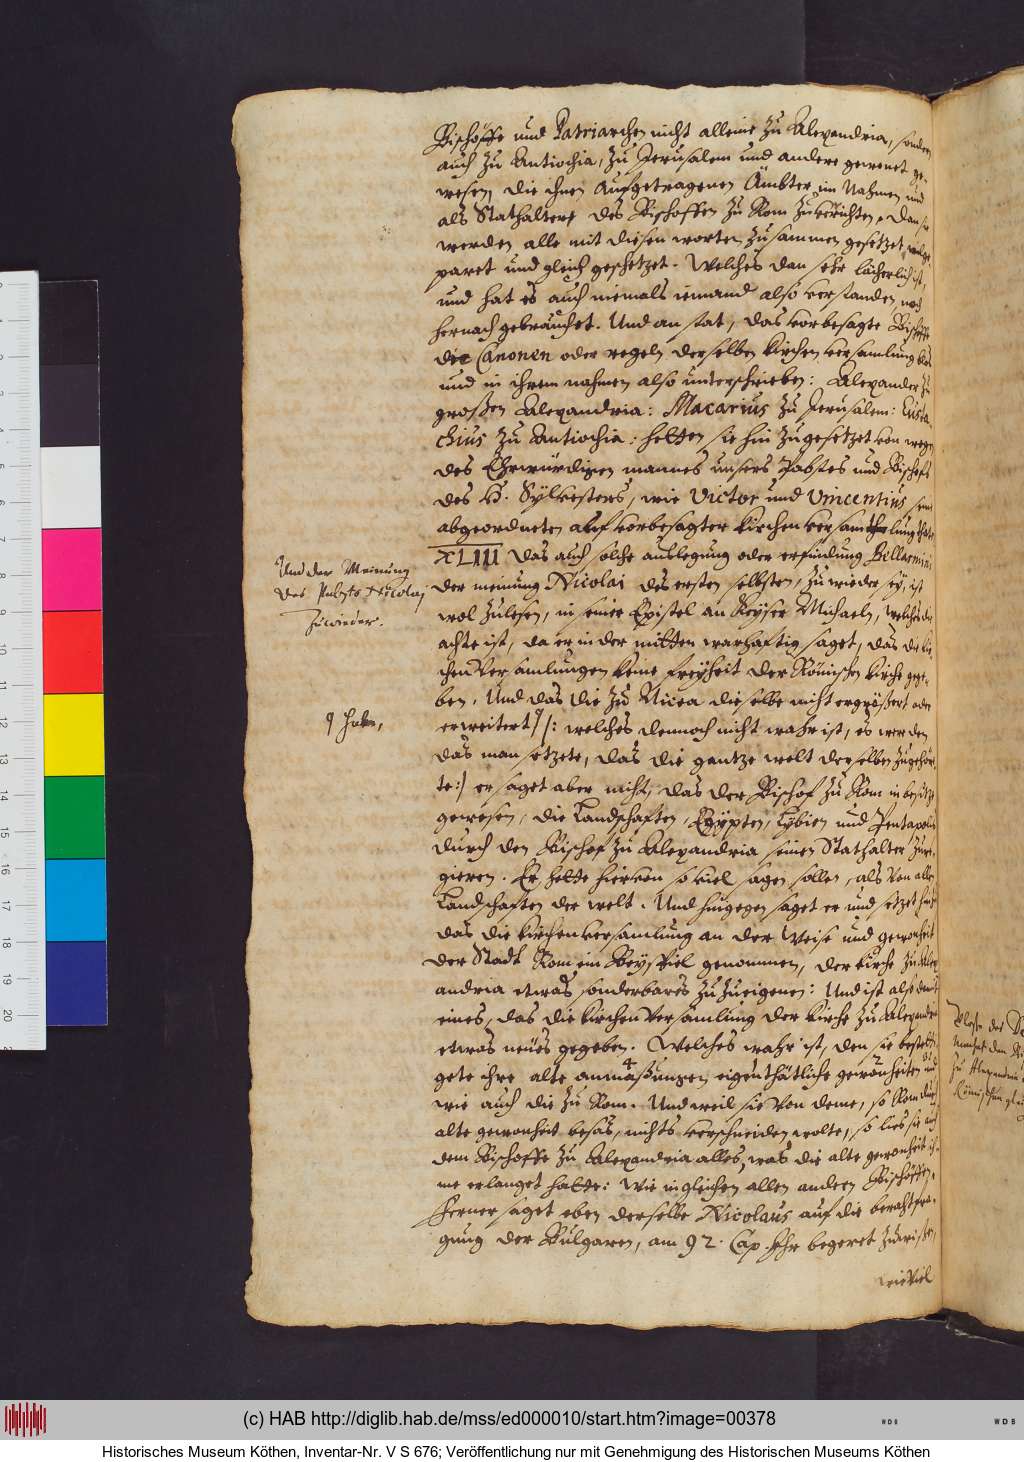 Bischöffe und Patriarchen nicht alleine zu Alexandria, sondern
auch zu Antiochia, zu Jerusalem und andere gewonet ge-
wesen, die ihnen aufgetragenen Ämbter im Nahmen und
als Stathaltere des Bischoffen zu Rom zu verrichten. Dan sie
werden alle mit diesen worten zusammen gesetzet,
paret und gleich geschetzet. Welches dan sehr lächerlich ist,
und hat es auch niemals iemand also verstanden, noch
hernach gebräuchet. Und an stat, das vorbesagte Bischoffe
die Canonen oder regeln derselben kirchen versamlung
und in ihrem nahmen also unterschrieben: Alexander zu
großen Alexandria: Macarius zu Jerusalem: Eusta-
chius zu Antiochia: hetten sie hin zugesetzet von wegen
des Ehrwürdigen mannes unsers Pabstes und Bischofs
des H. Sylvesters, wie Victor und Vincentius seine
abgeordneten auf vorbesagter kirchen versamlung thate
XLIII Das auch solche auslegung oder erfindung Bellarmini
der meinung Nicolai des ersten selbsten, zu wieder sey, ist
wol zulesen, in seiner Epistel an Keyser Michaeln, welches die
achte ist, da er in der mitten warhaftig saget, das die kir-
chen Versamlungen keine freyheit der Römischen kirche gege-
ben. Und das die zu Nicea dieselbe nicht vergrößert oder
erweitert /: welches dennoch nicht wahr ist, es werden
das man setzete, das die gantze welt derselben zugehör-
te:/ er saget aber nicht, das der Bischof zu Rom in besitze
gewesen, die Landschaften, Egypten, Lybien und Pentapolis
durch den Bischof zu Alexandria seinen Stathalter zure-
gieren. Er hette hiervon so viel sagen sollen, als von allen
Landschaften der welt. Und hingegen saget er und setzet hinzu
das die kirchenversamlung an der Weise und gewonheit
der Stadt Rom ein Beyspiel genommen, der kirche zu Alex
andria etwas sonderbares zuzueigenen: Und ist also
eines, das die kirchen Versamlung der kirche zu Alexandria
etwas neues gegeben. Welches wahr ist, den sie bestetti-
gete ihre alte anmaßungen eigenthätliche gewonheiten und
wie auch die zu Rom. Und weil sie von deme, so Rom durch
alte gewonheit besas, nichts verschneiden wolte, so lies sie auch
dem Bischoffe zu Alexandria alles, was die alte gewonheit ih-
me erlanget hatte: Wie ingleichen allen andern Bischöffen.
Ferner saget eben derselbe Nicolaus auf die berahtfra-
gung der Bulgaren, am 92. Cap. Ihr begeret zuwißen,
wieviel
Und der Meinung
des Pabsts Nicolaj
zuwieder.
haben,
(c) HAB http://diglib.hab.de/mss/ed000010/start.htm?image=00378
Historisches Museum Köthen, Inventar-Nr. V S 676; Veröffentlichung nur mit Genehmigung des Historischen Museums Köthen